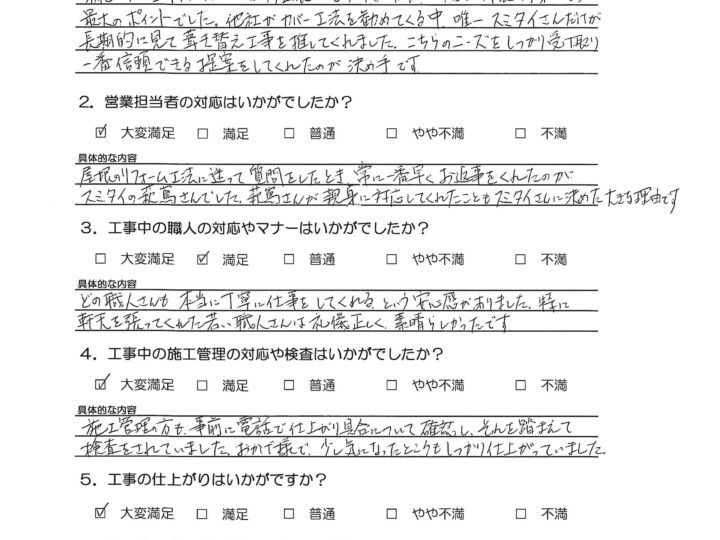 最大のポイントでした。他社がカバー工法を勧めてくる中、唯一スミタイさんだけが
長期的に見て葺き替え工事を推してくれました。こちらのニーズをしっかり受け取り
一番信頼できる提案をしてくれたのが決め手です
2. 営業担当者の対応はいかがでしたか?
☑ 大変満足 □ 満足 □ 普通 □ やや不満 □ 不満
具体的な内容
屋根のリフォーム工法に迷って質問をしたとき、常に一番早くお返事をくれたのが
スミタイの萩蔦さんでした。萩蔦さんが親身に対応してくれたこともスミタイさんに決めた大きな理由です
3. 工事中の職人の対応やマナーはいかがでしたか?
□ 大変満足 ☑ 満足 □ 普通 □ やや不満 □ 不満
具体的な内容
どの職人さんも本当に丁寧に仕事をしてくれる、という安心感がありました。特に
軒天を張ってくれた若い職人さんは礼儀正しく、素晴らしかったです
4. 工事中の施工管理の対応や検査はいかがでしたか?
☑ 大変満足 □ 満足 □ 普通 □ やや不満 □ 不満
具体的な内容
施工管理の方も、事前に電話で仕上がり具合について確認し、それを踏まえて
検査をされていました。おかげ様で、少し気になったところもしっかり仕上がっていました。
5. 工事の仕上がりはいかがですか?
☑ 大変満足 □ 満足 □ 普通 □ やや不満 □ 不満